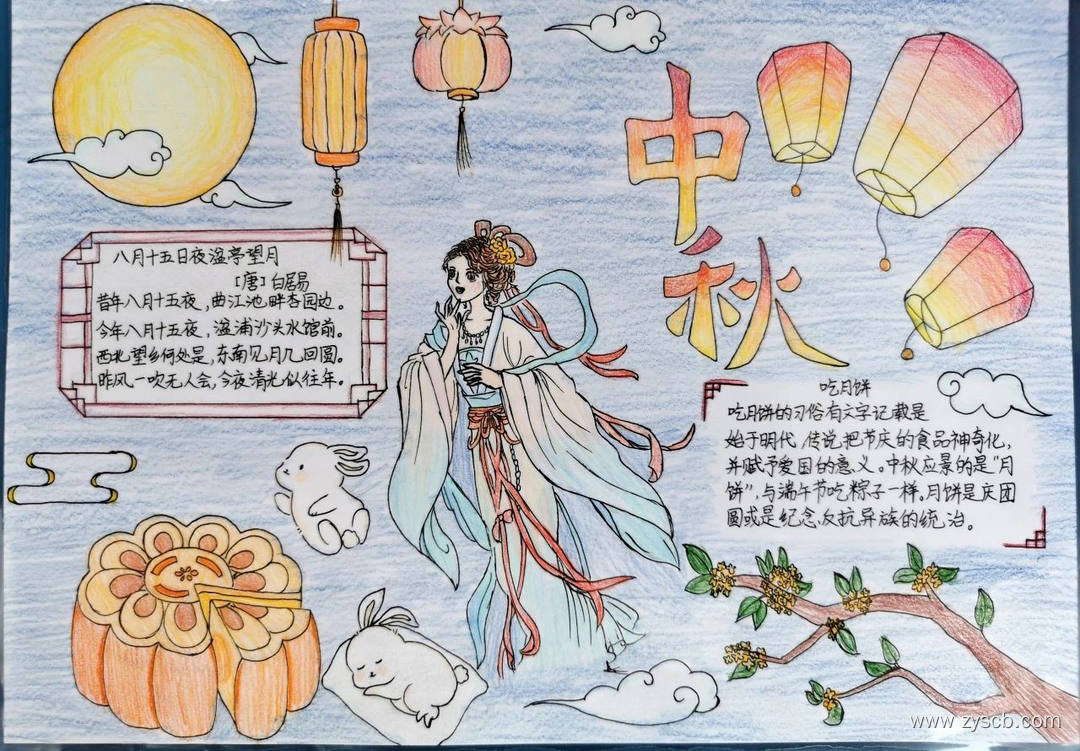 中秋
八月十五日夜湓亭望月
[唐]白居易
昔年八月十五夜,曲江池畔杏园边。
今年八月十五夜,湓浦沙头水馆前。
西北望乡何处是,东南见月几回圆。
昨风一吹无人会,今夜清光似往年。
吃月饼
吃月饼的习俗有文字记载是
始于明代,传说把节庆的食品神奇化,
并赋予爱国的意义。中秋应景的是“月
饼”,与端午节吃粽子一样。月饼是庆团
圆或是纪念反抗异族的统治。
www.zyscb.com